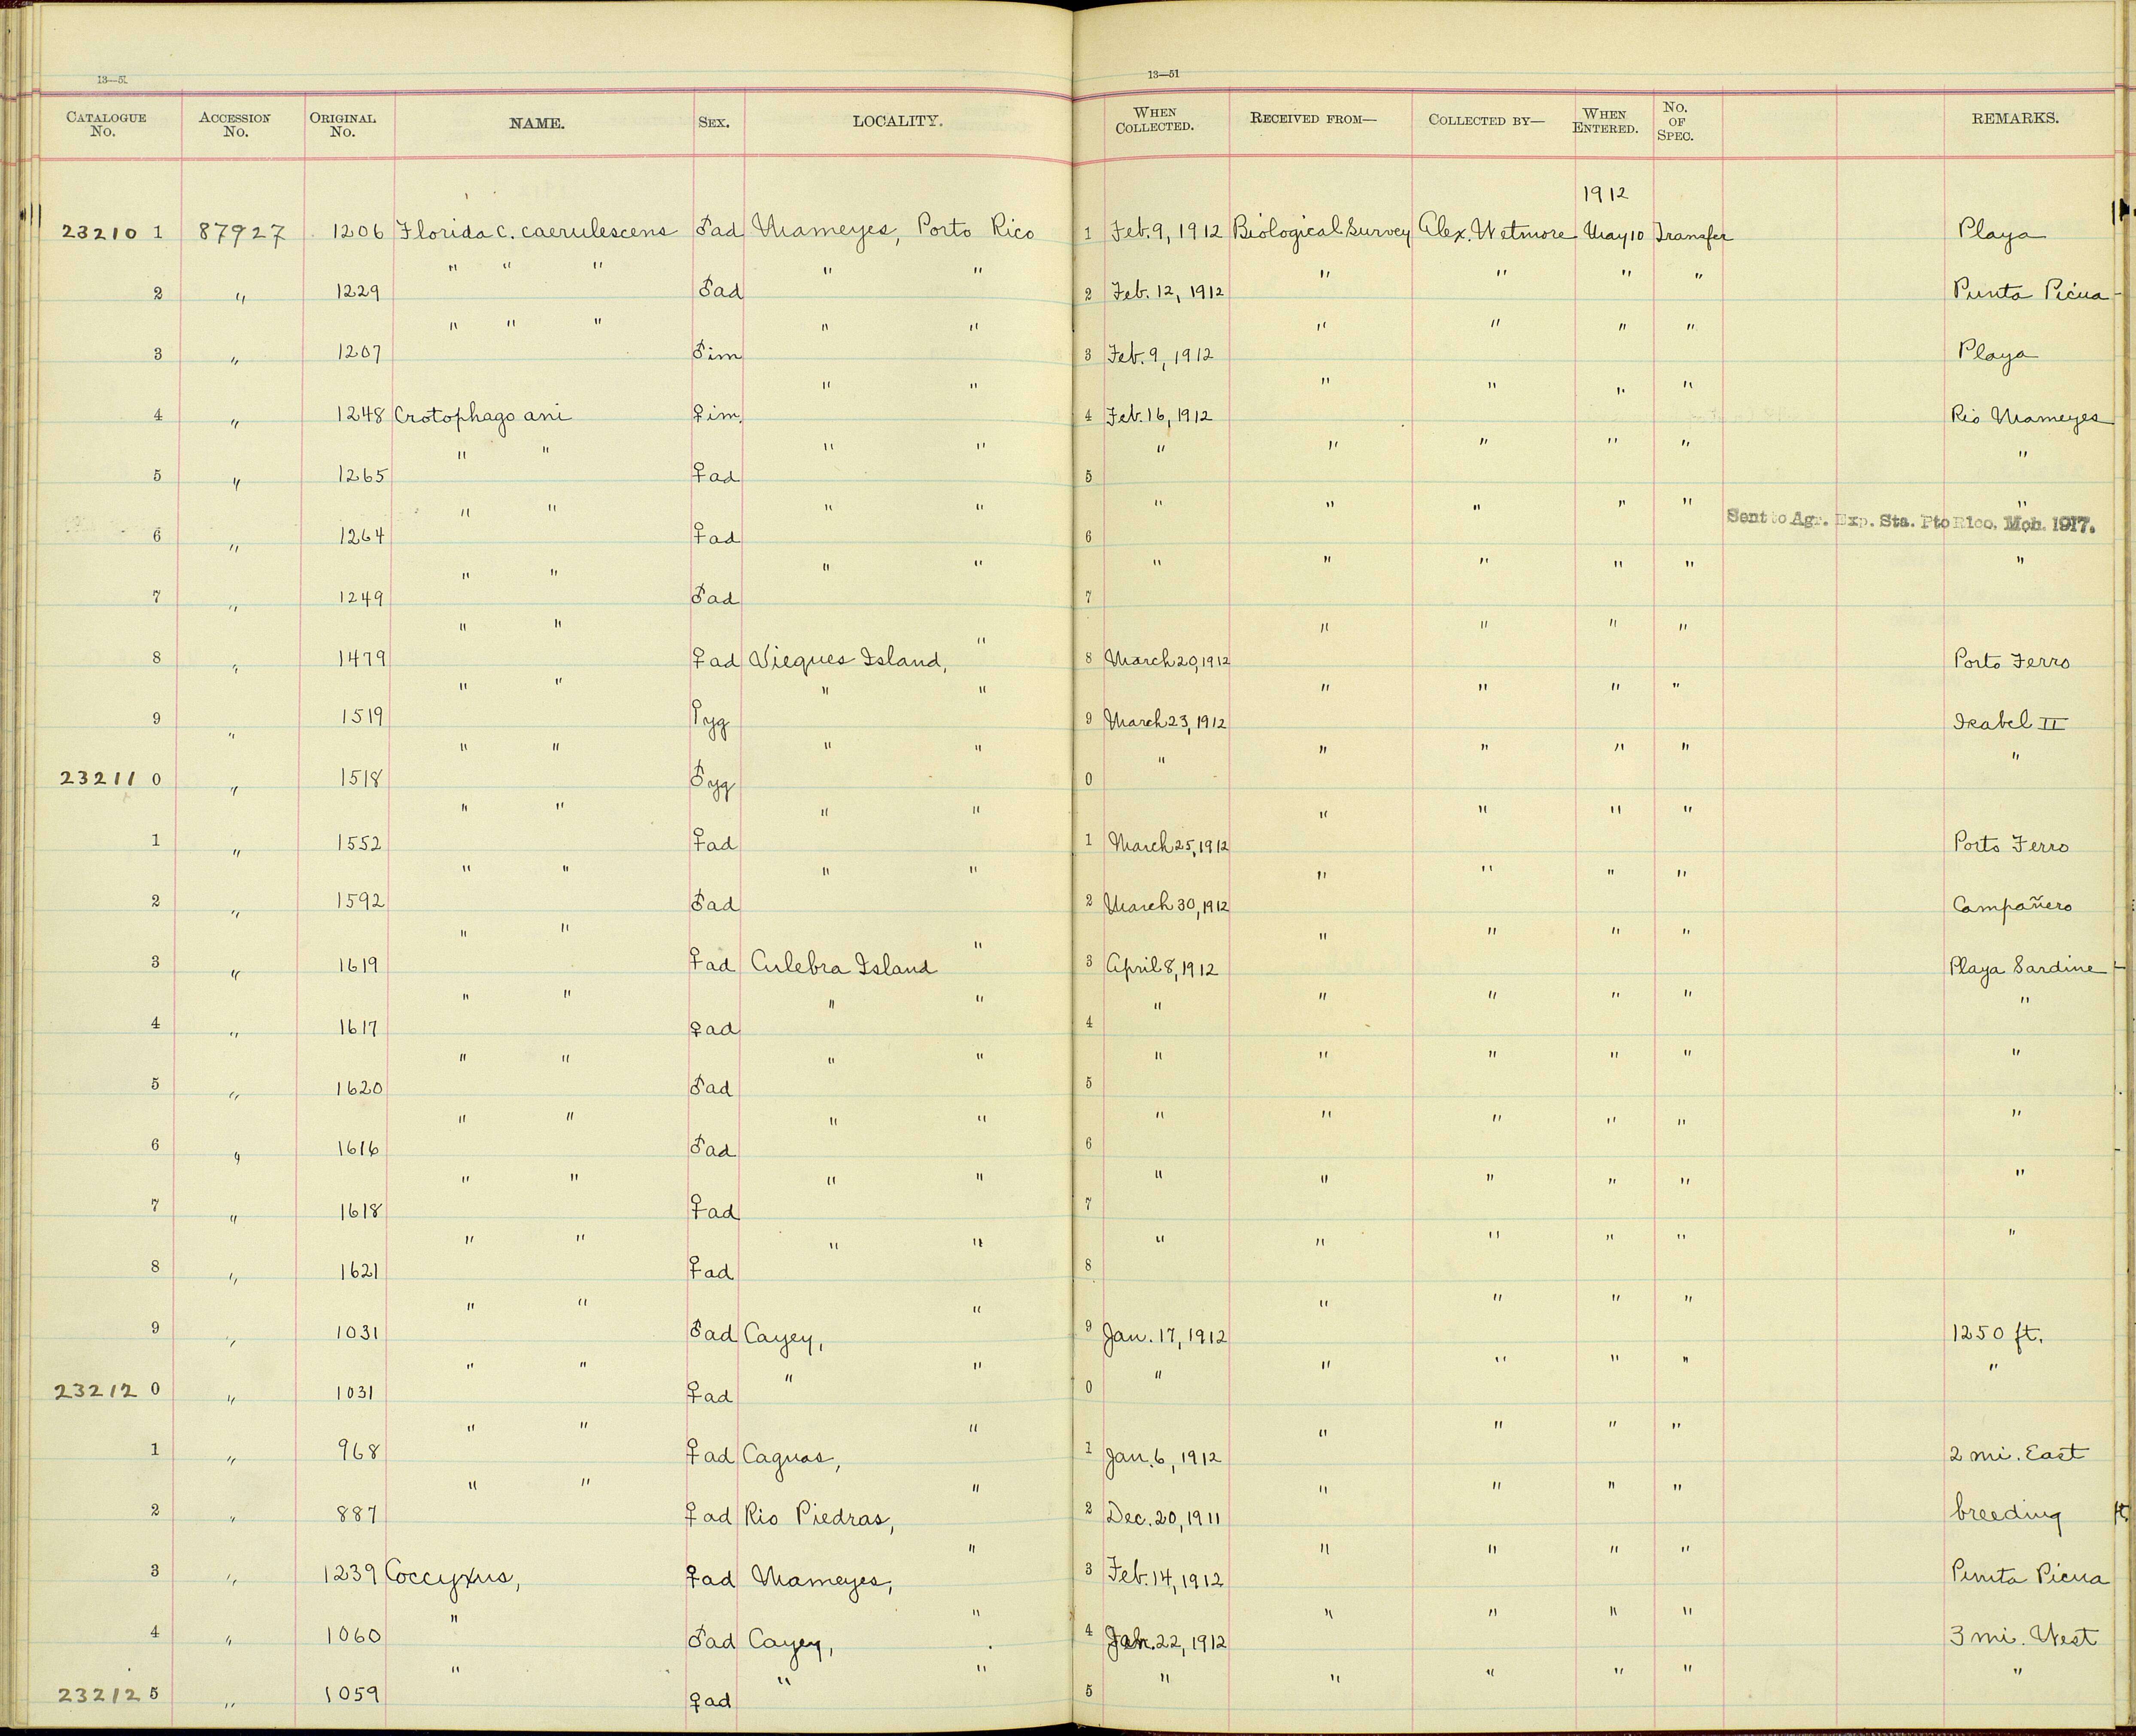 13—51 13—51
CATALOGUE No. ACCESSION No. ORIGINAL No. NAME. SEX. LOCALITY. WHEN COLLECTED. RECEIVED FROM— COLLECTED BY— WHEN ENTERED. No. OF SPEC. REMARKS.
1912
23210 1 87927 1206 Florida c. caerulescens ♂ad Mameyes, Porto Rico 1 Feb. 9, 1912 Biological Survey Alex. Wetmore May 10 Transfer Playa
2 " 1229 " " " ♂ad " " 2 Feb. 12, 1912 " " " " Punta Picua
3 " 1207 " " " ♂im " " 3 Feb. 9, 1912 " " " " Playa
4 " 1248 Crotophaga ani ♀im. " " 4 Feb. 16, 1912 " " " " Rio Mameyes
5 " 1265 " " ♀ad " " 5 " " " " " "
6 " 1264 " " ♀ad " " 6 " " " " " Sent to Agr. Exp. Sta. Pto Rico. Mch. 1917. "
7 " 1249 " " ♂ad " " 7 " " " " " "
8 " 1479 " " ♀ad Vieques Island, " 8 March 20, 1912 " " " " Porto Ferro
9 " 1519 " " ♀yg " " 9 March 23, 1912 " " " " Isabel II
23211 0 " 1518 " " ♂yg " " 0 " " " " " "
1 " 1552 " " ♀ad " " 1 March 25, 1912 " " " " Porto Ferro
2 " 1592 " " ♂ad " " 2 March 30, 1912 " " " " Campañero
3 " 1619 " " ♀ad Culebra Island " 3 April 8, 1912 " " " " Playa Sardine
4 " 1617 " " ♀ad " " 4 " " " " " "
5 " 1620 " " ♂ad " " 5 " " " " " "
6 " 1616 " " ♂ad " " 6 " " " " " "
7 " 1618 " " ♀ad " " 7 " " " " " "
8 " 1621 " " ♀ad " " 8 " " " " " "
9 " 1031 " " ♂ad Cayey, " 9 Jan. 17, 1912 " " " " 1250 ft.
23212 0 " 1031 " " ♀ad " " 0 " " " " " "
1 " 968 " " ♀ad Caguas, " 1 Jan. 6, 1912 " " " " 2 mi. East
2 " 887 " " ♀ad Rio Piedras, " 2 Dec. 20, 1911 " " " " breeding
3 " 1239 Coccyzus, ♀ad Mameyes, " 3 Feb. 14, 1912 " " " " Punta Picua
4 " 1060 " ♂ad Cayey, " 4 Jan. 22, 1912 " " " " 3 mi. West
23212 5 " 1059 " ♀ad " " 5 " " " " " "